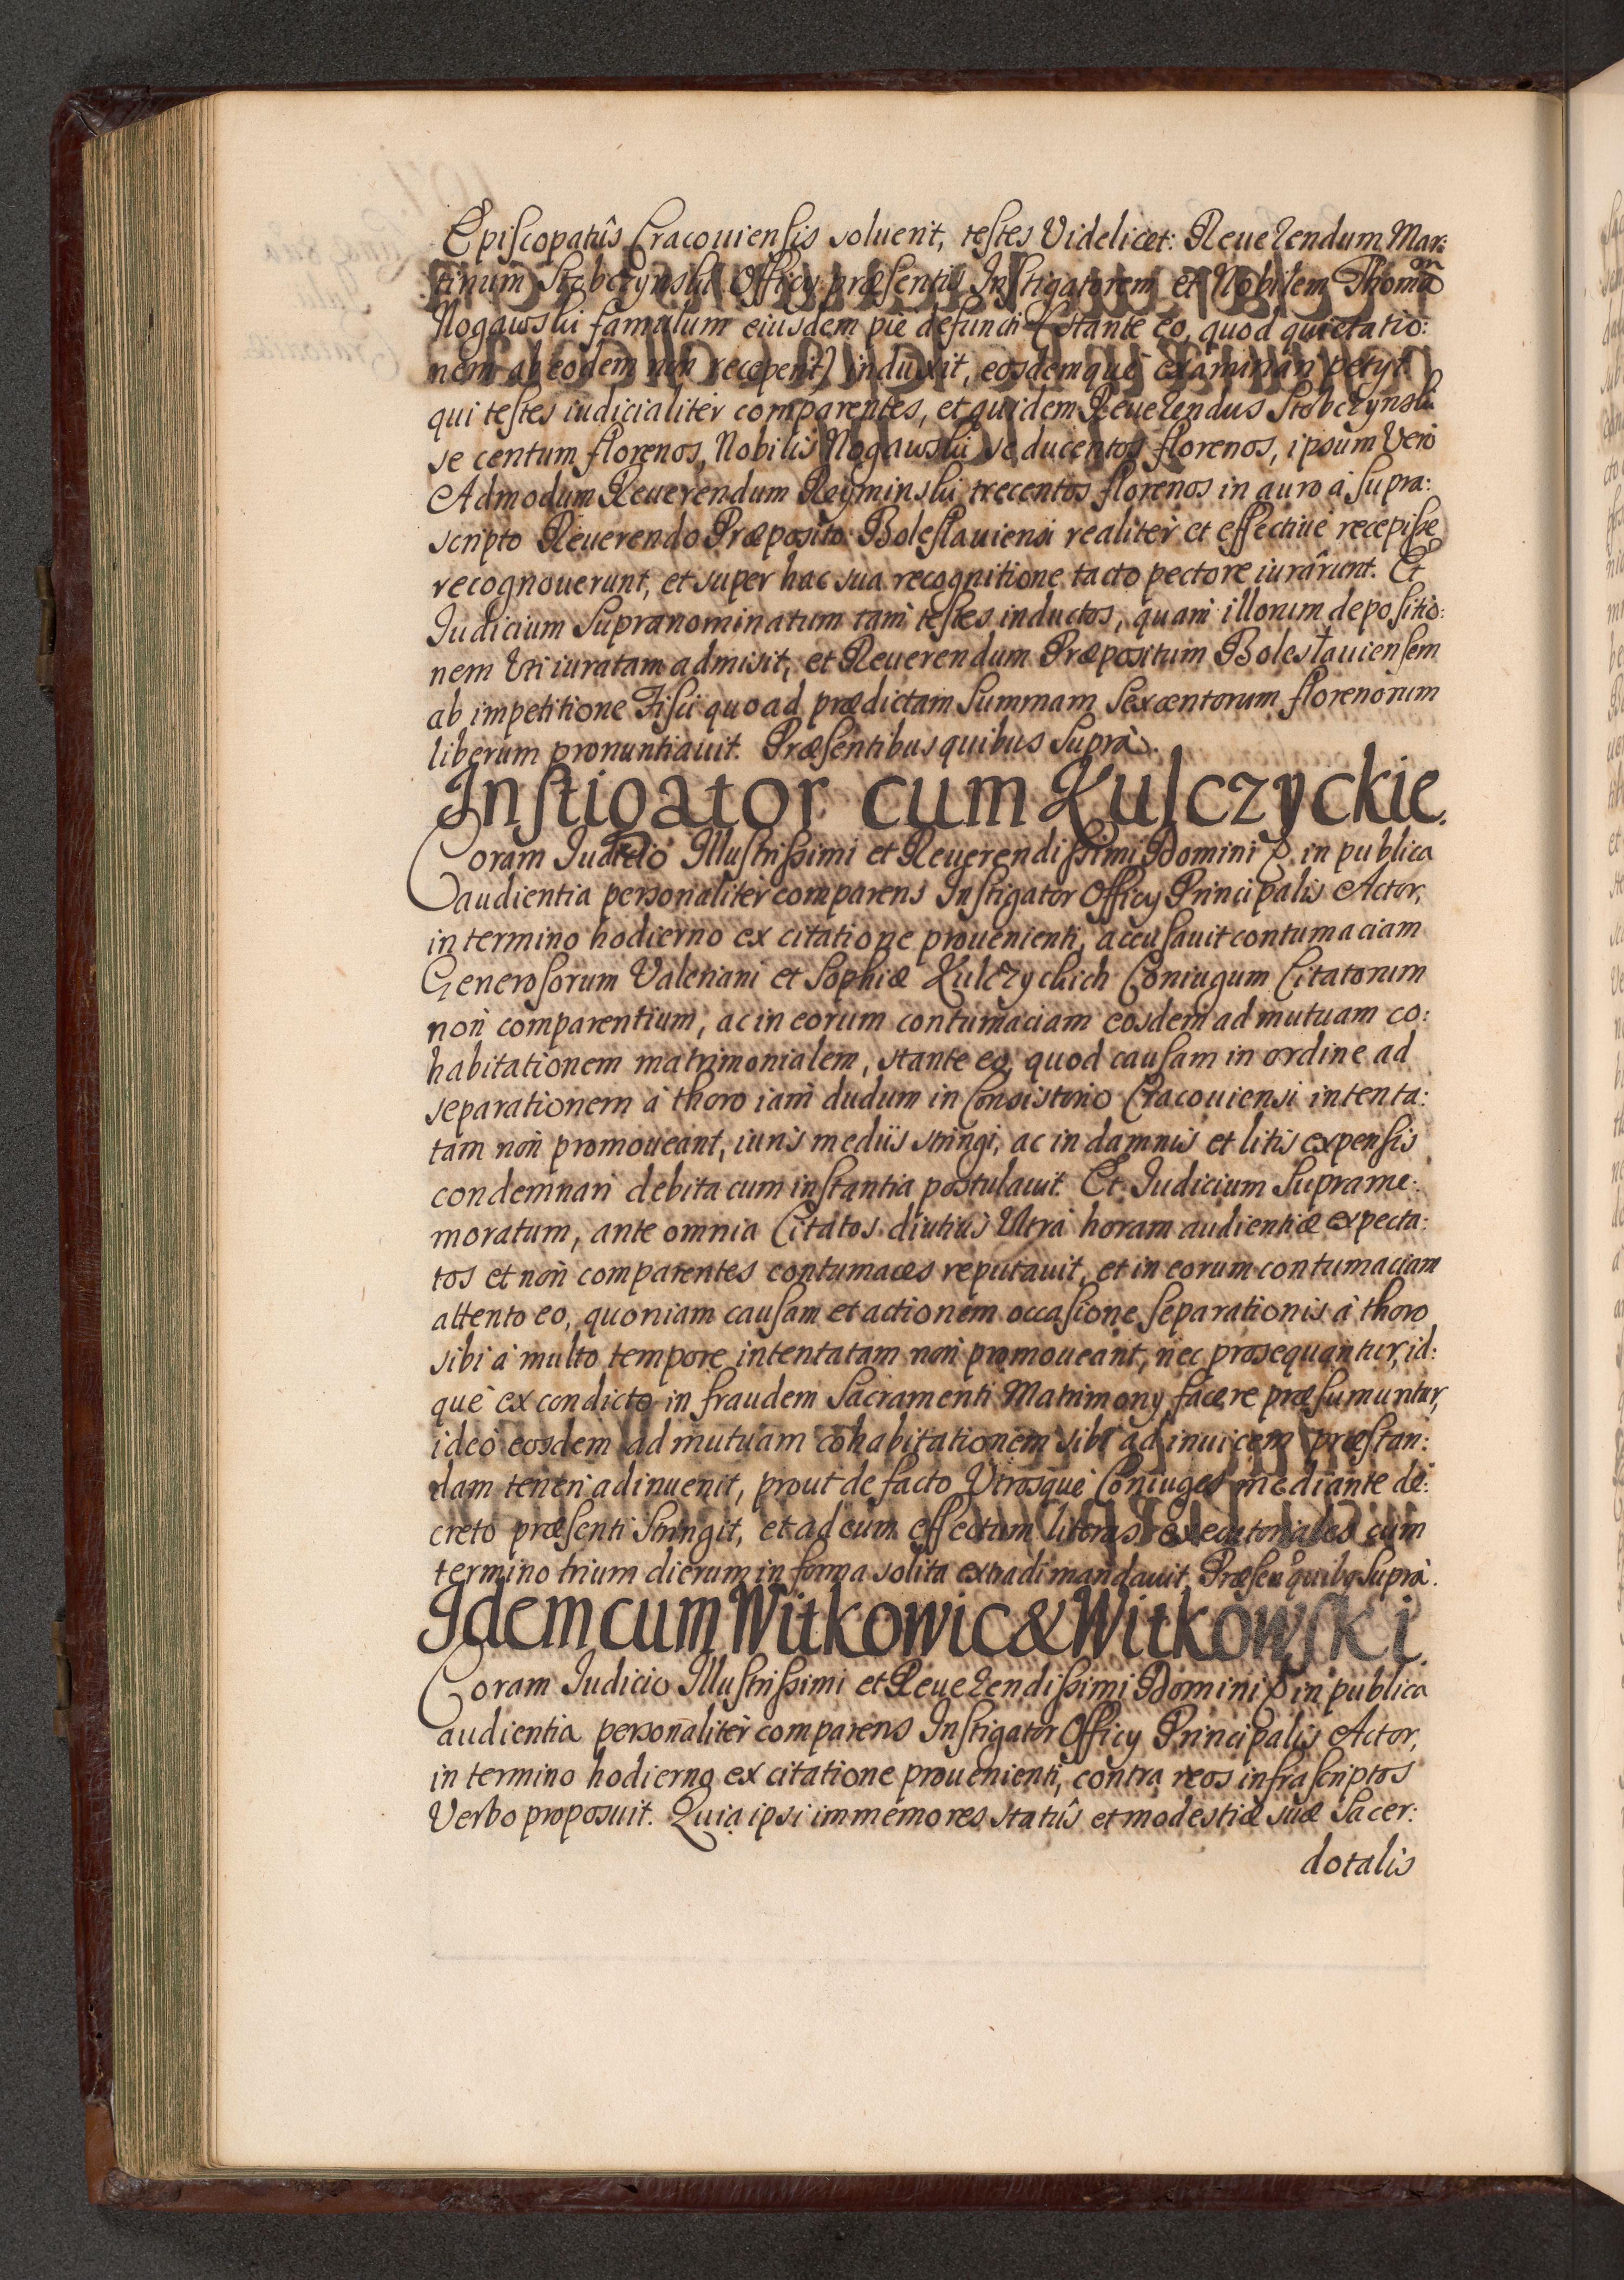 Episcopatûs Cracouiensis soluerit, testes Videlicet: Reuerendum Mar:
tinum Stobczynski Officÿ præsentis Instigatorem et Nobilem Thomam
Nogawski famulum eiusdem pie defuncti (Stante eo, quod quietatio:
nem ab eodem non receperit) induxit, eosdemque examinari petÿt
qui testes iudicialiter comparentes, et quidem Reuerendus Stobczynski
se centum florenos, Nobilis Nogawski se ducentos florenos, ipsum Vero
Admodum Reuerendum Reyminski trecentos florenos in auro à Supra:
scripto Reuerendo Præposito Boleslauiensi realiter et effectiue recepisse
recognouerunt, et super hac sua recognitione tacto pectore iurârunt. Et
Iudicium Supranominatum tam testes inductos, quam illorum depositio:
nem Uti iuratam admisit, et Reuerendum Præpositum Boleslauiensem
ab impetitione Fisci quoad prædictam Summam Sexcentorum florenorum
liberum pronuntiauit. Præsentibus quibus Supra.
Instigator cum Kulczyckie.
Coram Iudicio Illustrissimi et Reuerendissimi Domini in publica
audientia personaliter comparens Instigator Officÿ Principalis Actor,
in termino hodierno ex citatione prouenienti, accusauit contumaciam
Generosorum Valeriani et Sophiæ Kulczyckich Coniugum Citatorum
non comparentium, ac in eorum contumaciam eosdem ad mutuam co:
habitationem matrimonialem, stante eo, quod causam in ordine ad
separationem à thoro iam dudum in Consistorio Cracouiensi intenta:
tam non promoueant, iuris mediis stringi, ac in damnis et litis expensis
condemnari debita cum instantia postulauit. Et Iudicium Suprame:
moratum, ante omnia Citatos diutius Ultra horam audientiæ expecta:
tos et non comparentes contumaces reputauit, et in eorum contumaciam
attento eo, quoniam causam et actionem occasione separationis à thoro
sibi à multo tempore intentatam non promoueant, nec prosequantur, id:
que ex condicto in fraudem Sacramenti Matrimonÿ facere præsumuntur,
ideo eosdem ad mutuam cohabitationem sibi ad inuicem præstan:
dam teneri adinuenit, prout de facto Utrosque Coniuges mediante de:
creto præsenti Stringit, et ad eum effectum literas executoriales cum
termino trium dierum in forma solita extradi mandauit. Præsen. quibus Supra.
Idem cum Witkowic & Witkowski.
Coram Iudicio Illustrissimi et Reuerendissimi Domini in publica
audientia personaliter comparens Instigator Officÿ Principalis Actor,
in termino hodierno ex citatione prouenienti, contra reos infrascriptos
Verbo proposuit. Quia ipsi immemores statûs et modestiæ suæ Sacer:
dotalis